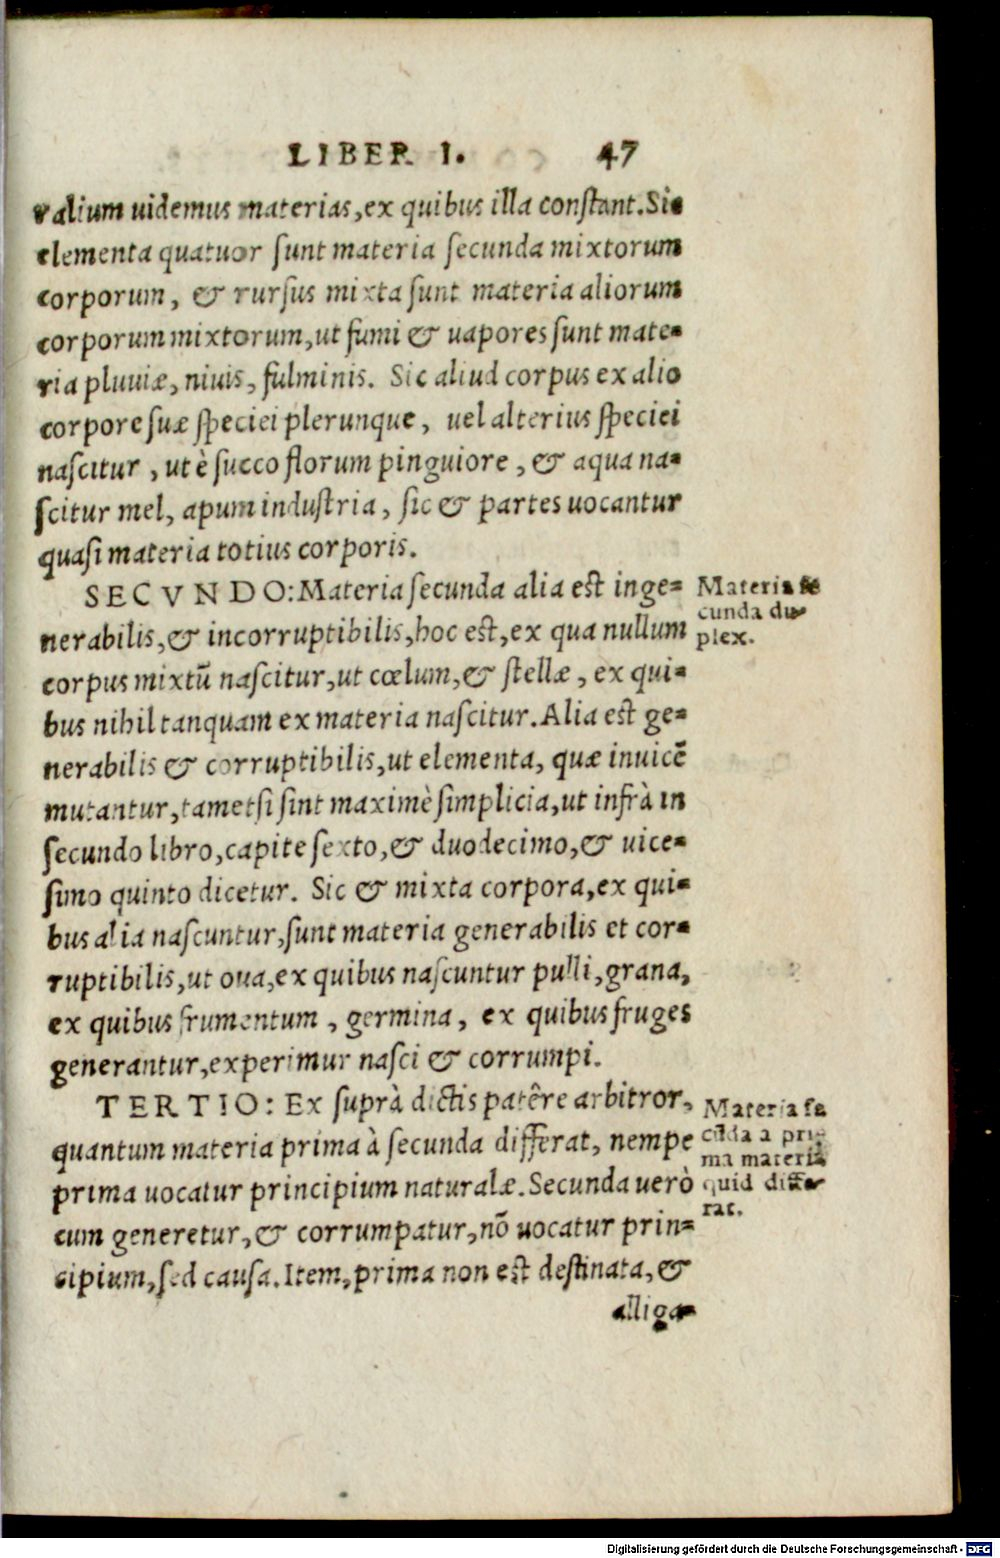 LIBER I. 47
ralium uidemus materias, ex quibus illa constant. Sic
elementa quatuor sunt materia secunda mixtorum
corporum, & rursus mixta sunt materia aliorum
corporum mixtorum, ut fumi & uapores sunt mate-
ria pluuiæ, niuis, fulminis. Sic aliud corpus ex alio
corpore suæ speciei plerunque, uel alterius speciei
nascitur, ut è succo florum pinguiore, & aqua na-
scitur mel, apum industria, sic & partes uocantur
quasi materia totius corporis.
SECVNDO: Materia secunda alia est inge-
nerabilis, & incorruptibilis, hoc est, ex qua nullum
corpus mixtū nascitur, ut cœlum, & stellæ, ex qui-
bus nihil tanquam ex materia nascitur. Alia est ge-
nerabilis & corruptibilis, ut elementa, quæ inuicē
mutantur, tametsi sint maximè simplicia, ut infrà in
secundo libro, capite sexto, & duodecimo, & uice-
simo quinto dicetur. Sic & mixta corpora, ex qui-
bus alia nascuntur, sunt materia generabilis et cor-
ruptibilis, ut oua, ex quibus nascuntur pulli, grana,
ex quibus frumentum, germina, ex quibus fruges
generantur, experimur nasci & corrumpi.
TERTIO: Ex suprà dictis patêre arbitror,
quantum materia prima à secunda differat, nempe
prima uocatur principium naturalæ. Secunda uerò
cum generetur, & corrumpatur, nō uocatur prin-
cipium, sed causa. Item, prima non est destinata, &
alliga-
Materia se
cunda du-
plex.
Materia se
cūda a pri-
ma materia
quid diffe-
rat.
Digitalisierung gefördert durch die Deutsche Forschungsgemeinschaft - DFG